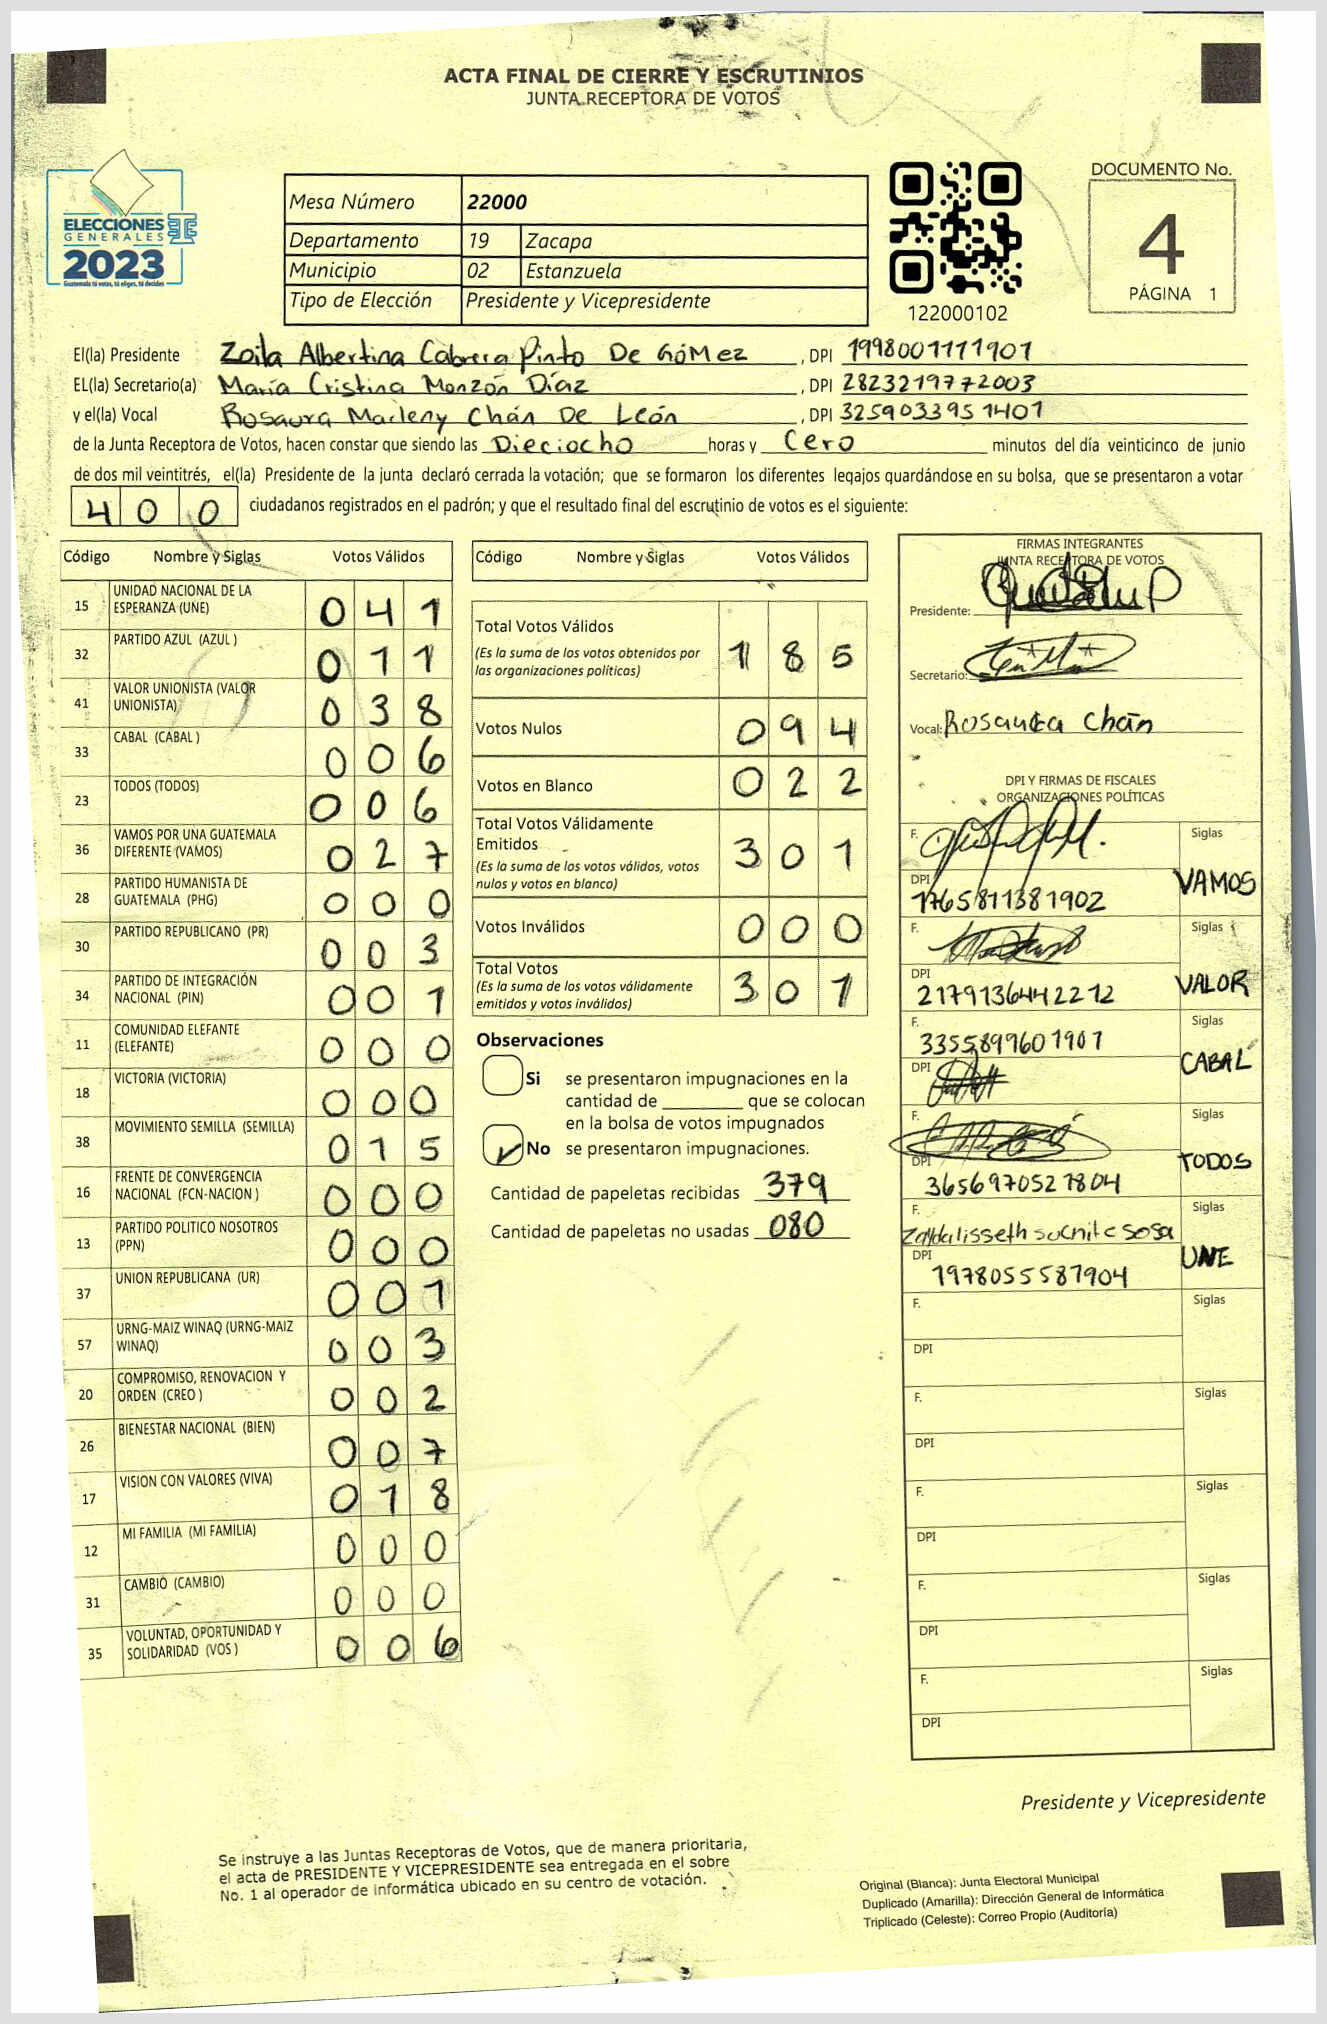 ACTA FINAL DE CIERRE Y ESCRUTINIOS
JUNTA RECEPTORA DE VOTOS
ELECCIONES
GENERALES
2023
Guatemala tú votas, tú eliges, tú decides
Mesa Número 22000
Departamento 19 Zacapa
Municipio 02 Estanzuela
Tipo de Elección Presidente y Vicepresidente
122000102
DOCUMENTO No.
4
PÁGINA 1
El(la) Presidente Zoila Albertina Cabrera Pinto De GóMez, DPI 1998001111901
EL(la) Secretario(a) María Cristina Monzón Díaz, DPI 2823219772003
y el(la) Vocal Rosaura Marleny Chán De León, DPI 3259033951401
de la Junta Receptora de Votos, hacen constar que siendo las Dieciocho horas y Cero minutos del día veinticinco de junio
de dos mil veintitrés, el(la) Presidente de la junta declaró cerrada la votación; que se formaron los diferentes legajos guardándose en su bolsa, que se presentaron a votar
400 ciudadanos registrados en el padrón; y que el resultado final del escrutinio de votos es el siguiente:
Código Nombre y Siglas Votos Válidos
15 UNIDAD NACIONAL DE LA ESPERANZA (UNE) 041
32 PARTIDO AZUL (AZUL ) 011
41 VALOR UNIONISTA (VALOR UNIONISTA) 038
33 CABAL (CABAL ) 006
23 TODOS (TODOS) 006
36 VAMOS POR UNA GUATEMALA DIFERENTE (VAMOS) 027
28 PARTIDO HUMANISTA DE GUATEMALA (PHG) 000
30 PARTIDO REPUBLICANO (PR) 003
34 PARTIDO DE INTEGRACIÓN NACIONAL (PIN) 001
11 COMUNIDAD ELEFANTE (ELEFANTE) 000
18 VICTORIA (VICTORIA) 000
38 MOVIMIENTO SEMILLA (SEMILLA) 015
16 FRENTE DE CONVERGENCIA NACIONAL (FCN-NACION ) 000
13 PARTIDO POLITICO NOSOTROS (PPN) 000
37 UNION REPUBLICANA (UR) 001
57 URNG-MAIZ WINAQ (URNG-MAIZ WINAQ) 003
20 COMPROMISO, RENOVACION Y ORDEN (CREO ) 002
26 BIENESTAR NACIONAL (BIEN) 007
17 VISION CON VALORES (VIVA) 018
12 MI FAMILIA (MI FAMILIA) 000
31 CAMBIO (CAMBIO) 000
35 VOLUNTAD, OPORTUNIDAD Y SOLIDARIDAD (VOS ) 006
Código Nombre y Siglas Votos Válidos
Total Votos Válidos 185
(Es la suma de los votos obtenidos por
las organizaciones políticas)
Votos Nulos 094
Votos en Blanco 022
Total Votos Válidamente
Emitidos 301
(Es la suma de los votos válidos, votos
nulos y votos en blanco)
Votos Inválidos 000
Total Votos 301
(Es la suma de los votos válidamente
emitidos y votos inválidos)
Observaciones
Si se presentaron impugnaciones en la
cantidad de ________ que se colocan
en la bolsa de votos impugnados
No se presentaron impugnaciones.
Cantidad de papeletas recibidas 379
Cantidad de papeletas no usadas 080
FIRMAS INTEGRANTES
JUNTA RECEPTORA DE VOTOS
Presidente:
Secretario:
Vocal: Rosaura Chán
DPI Y FIRMAS DE FISCALES
ORGANIZACIONES POLÍTICAS
F. Siglas
DPI 1765811381902 VAMOS
F. Siglas
DPI 2179136442212 VALOR
F. 3355899601901 Siglas
DPI CABAL
F. Siglas
DPI 3656970521804 TODOS
F. Siglas
DPI 1978055581904 UNE
F. Siglas
DPI
F. Siglas
DPI
F. Siglas
DPI
F. Siglas
DPI
F. Siglas
DPI
Presidente y Vicepresidente
Se instruye a las Juntas Receptoras de Votos, que de manera prioritaria,
el acta de PRESIDENTE Y VICEPRESIDENTE sea entregada en el sobre
No. 1 al operador de informática ubicado en su centro de votación.
Original (Blanca): Junta Electoral Municipal
Duplicado (Amarilla): Dirección General de Informática
Triplicado (Celeste): Correo Propio (Auditoría)